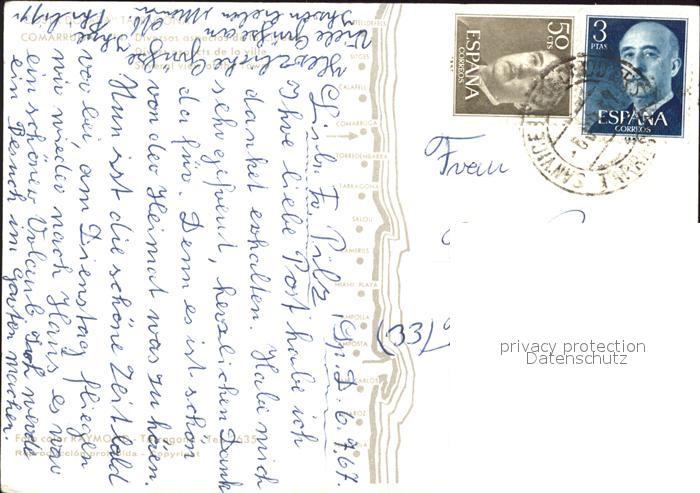 Sp. D. 6.9.67.
Lieb. Fr. Pilz
Ihre liebe Post habe ich
danket erhalten. Habe mich
sehr gefreut, herzlichen Dank
dafür. Denn es ist schön
von der Heimat was zu hören.
Nun ist die schöne Zeit bald
vorbei, am Dienstag fliegen
wir wieder nach Haus es war
ein schöner Urlaub. Ich werde
ein Besuch im Garten machen.
Herzliche Grüße
Viele Grüße an
Ihren lieben Mann
Ihre
Frau
COMARRUGA
Diversos aspectos de la
SITGES
CALAFELL
COMARRUGA
TORREDEMBARRA
TARRAGONA
SALOU
CAMBRILS
MIAMI PLAYA
Foto color RAYMOND - Tarragona - Tel.
Reproducción prohibida - Copyright
50 CTS
ESPAÑA
CORREOS
3 PTAS
ESPAÑA
CORREOS
privacy protection
Datenschutz